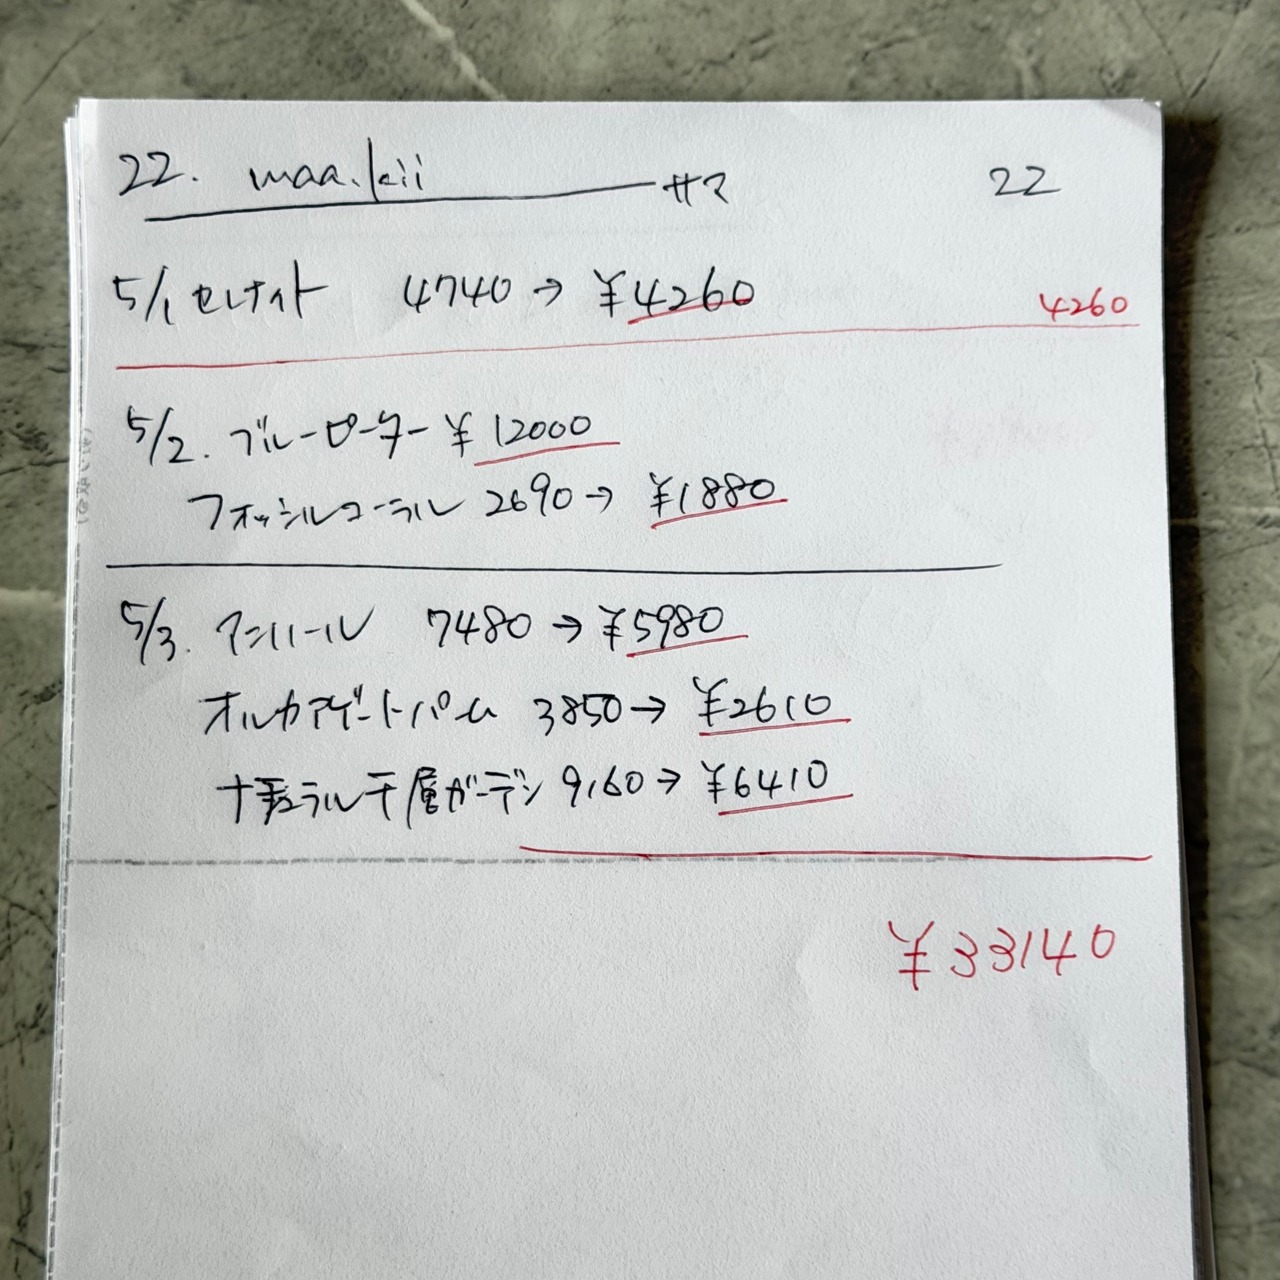 22. maa.kii サマ 22
5/1 セレナイト 4740→¥4260 4260
5/2. ブルーピーター ¥12000
フォッシルコーラル 2690→ ¥1880
5/3. アンハール 7480→¥5980
オルカアゲートパーム 3850→ ¥2610
ナチュラル千層ガーデン 9160→¥6410
¥33140